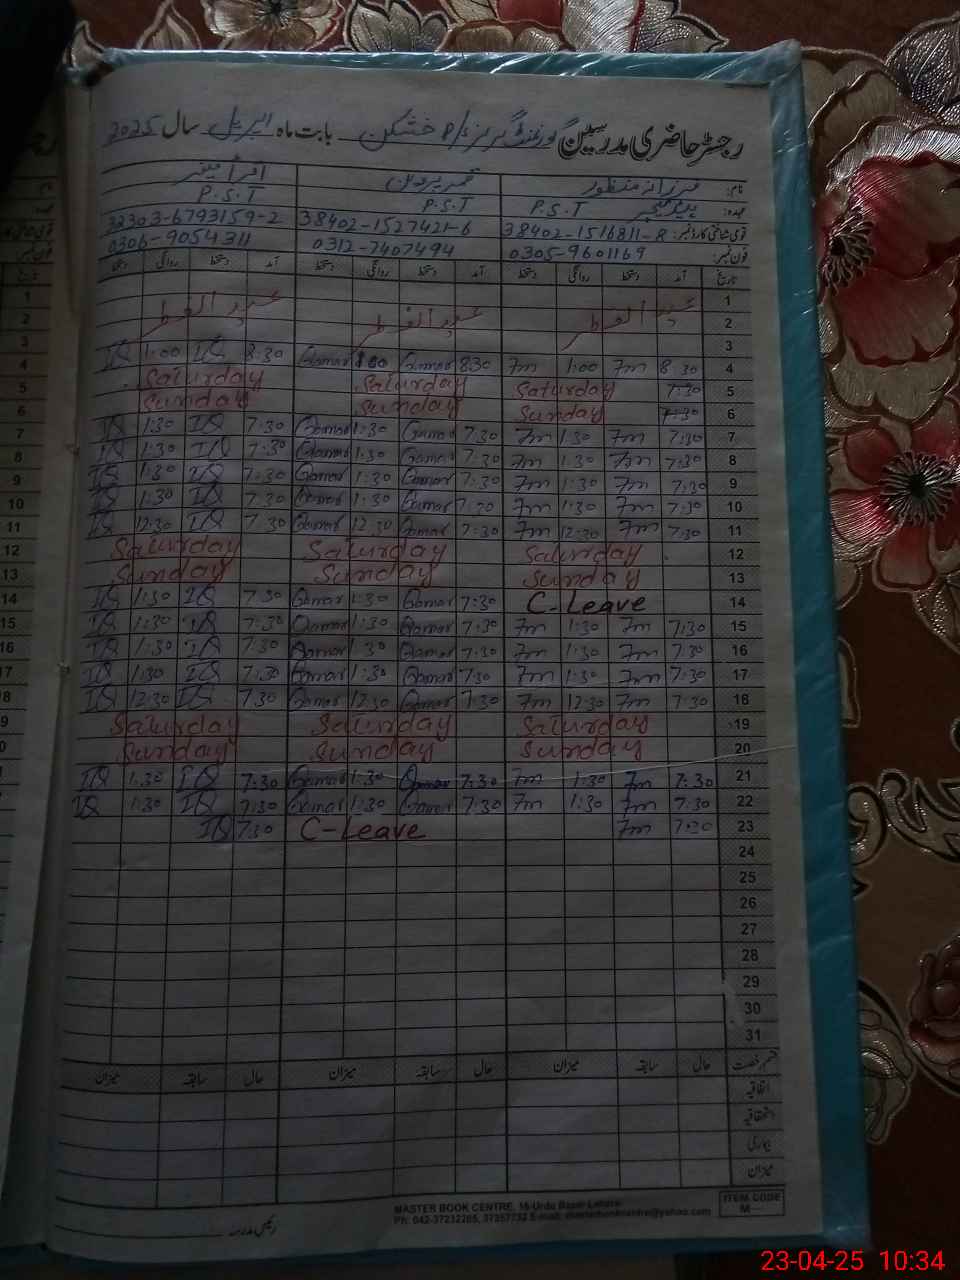 رجسٹر حاضری مدرسین گورنمنٹ گرلز P/S خشکن بابت ماہ اپریل سال 2025
نام: فرزانہ منظور قمر پروین اقرا
عہدہ: ہیڈ ٹیچر P.S.T P.S.T P.S.T
قومی شناختی کارڈ نمبر: 38402-1516811-8 38402-1527421-6 32303-6793159-2
فون نمبر: 0305-9601169 0312-7407494 0306-9054311
تاریخ آمد دستخط روانگی دستخط آمد دستخط روانگی دستخط آمد دستخط روانگی دستخط
1
2 عید الفطر عید الفطر عید الفطر
3
4 8 30 7m 1:00 7m 830 Qamar 1:00 Qamar 8:30 IQ 1:00 IQ
5 7:30 Saturday Saturday Saturday
6 7:30 Sunday Sunday Sunday
7 7:30 7m 1:30 7m 7:30 Qamar 1:30 Qamar 7:30 IQ 1:30 IQ
8 7:30 7m 1:30 7m 7:30 Qamar 1:30 Qamar 7:30 IQ 1:30 IQ
9 7:30 7m 1:30 7m 7:30 Qamar 1:30 Qamar 7:30 IQ 1:30 IQ
10 7:30 7m 1:30 7m 7:30 Qamar 1:30 Qamar 7:30 IQ 1:30 IQ
11 7:30 7m 12:30 7m 7:30 Qamar 12:30 Qamar 7:30 IQ 12:30 IQ
12 Saturday Saturday Saturday
13 Sunday Sunday Sunday
14 C-Leave 7:30 Qamar 1:30 Qamar 7:30 IQ 1:30 IQ
15 7:30 7m 1:30 7m 7:30 Qamar 1:30 Qamar 7:30 IQ 1:30 IQ
16 7:30 7m 1:30 7m 7:30 Qamar 1:30 Qamar 7:30 IQ 1:30 IQ
17 7:30 7m 1:30 7m 7:30 Qamar 1:30 Qamar 7:30 IQ 1:30 IQ
18 7:30 7m 12:30 7m 7:30 Qamar 12:30 Qamar 7:30 IQ 12:30 IQ
19 Saturday Saturday Saturday
20 Sunday Sunday Sunday
21 7:30 7m 1:30 7m 7:30 Qamar 1:30 Qamar 7:30 IQ 1:30 IQ
22 7:30 7m 1:30 7m 7:30 Qamar 1:30 Qamar 7:30 IQ 1:30 IQ
23 7:30 7m C-Leave 7:30 IQ
24
25
26
27
28
29
30
31
قسم رخصت حال سابقہ میزان حال سابقہ میزان حال سابقہ میزان
اتفاقیہ
استحقاقیہ
بیماری
میزان
رئیس مدرسہ
MASTER BOOK CENTRE, 16-Urdu Bazar Lahore
Ph: 042-37232265, 37357732 E-mail: masterbookcentre@yahoo.com
ITEM CODE
M
23-04-25 10:34